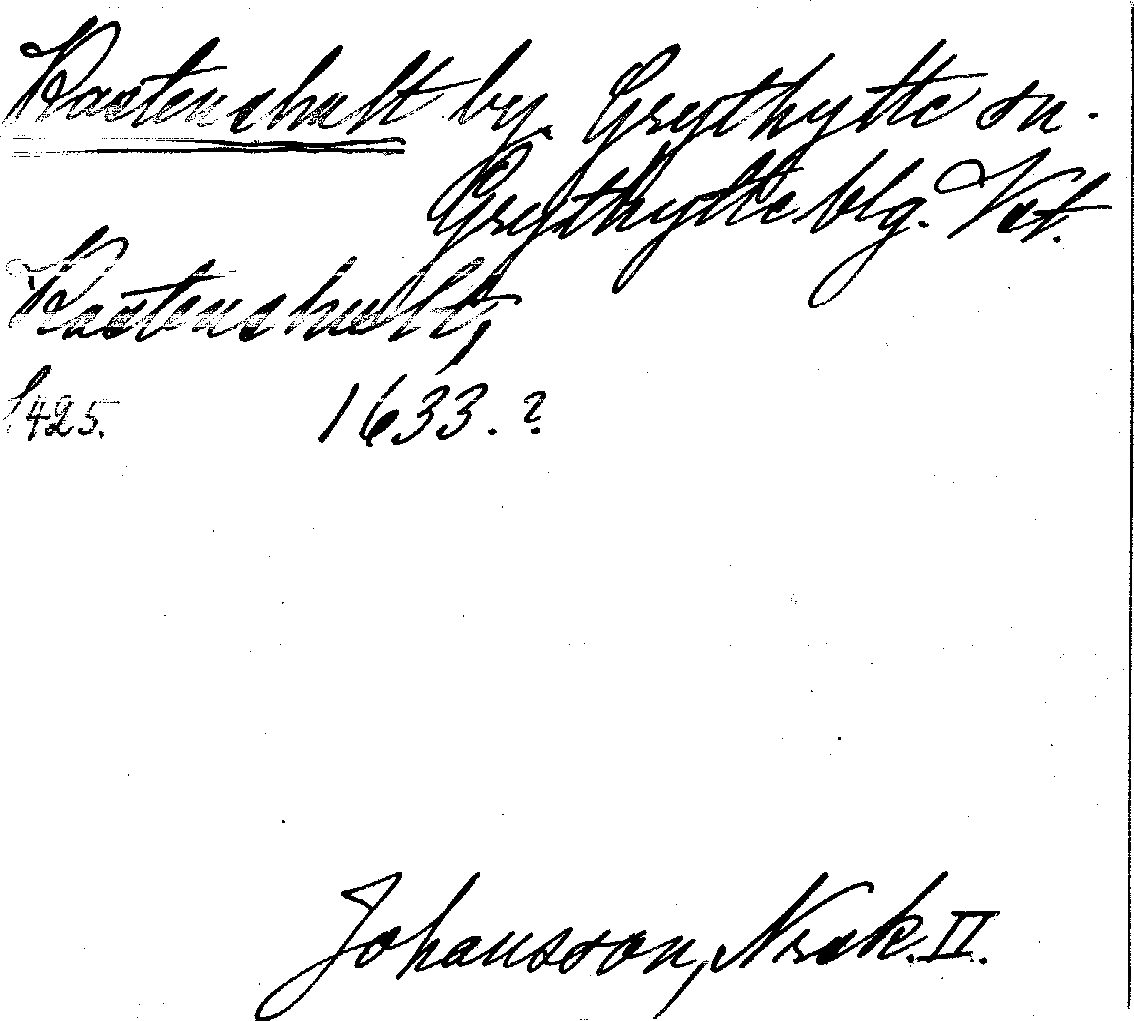 Kastenshult by. Grythytte sn.
Grythytte blg. Vst.
Kastenshult,
S. 425. 1633. ?
Johansson, Nrak. II.